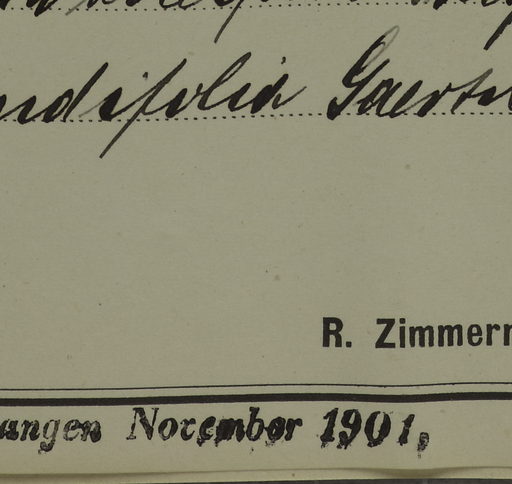 ndifolia Gaertn
R. Zimmerm
angen November 1901,